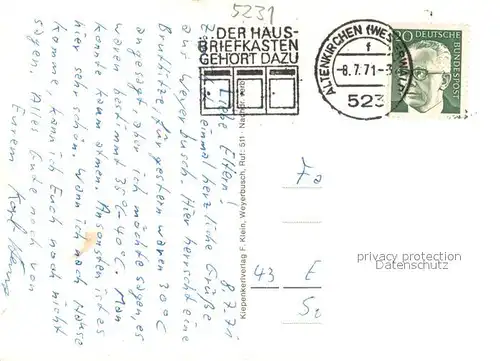 5231
DER HAUS-
BRIEFKASTEN
GEHÖRT DAZU
ALTENKIRCHEN (WESTERWALD)
f
-8.7.71-
523
20 DEUTSCHE
BUNDESPOST
8.7.71
Liebe Eltern!
Zunächst einmal herzliche Grüße
aus Weyerbusch. Hier herrscht eine
Bruthitze. Für gestern waren 30°C
angesagt, aber ich möchte sagen, es
waren bestimmt 35°C-40°C. Man
konnte kaum atmen. Ansonsten ist es
hier sehr schön. Wann ich nach Hause
komme, kann ich Euch noch nicht
sagen. Alles Gute noch von
Eurem
Kiepenkerlverlag F. Klein, Weyerbusch, Ruf: 511
Fa
43
E
privacy protection
Datenschutz